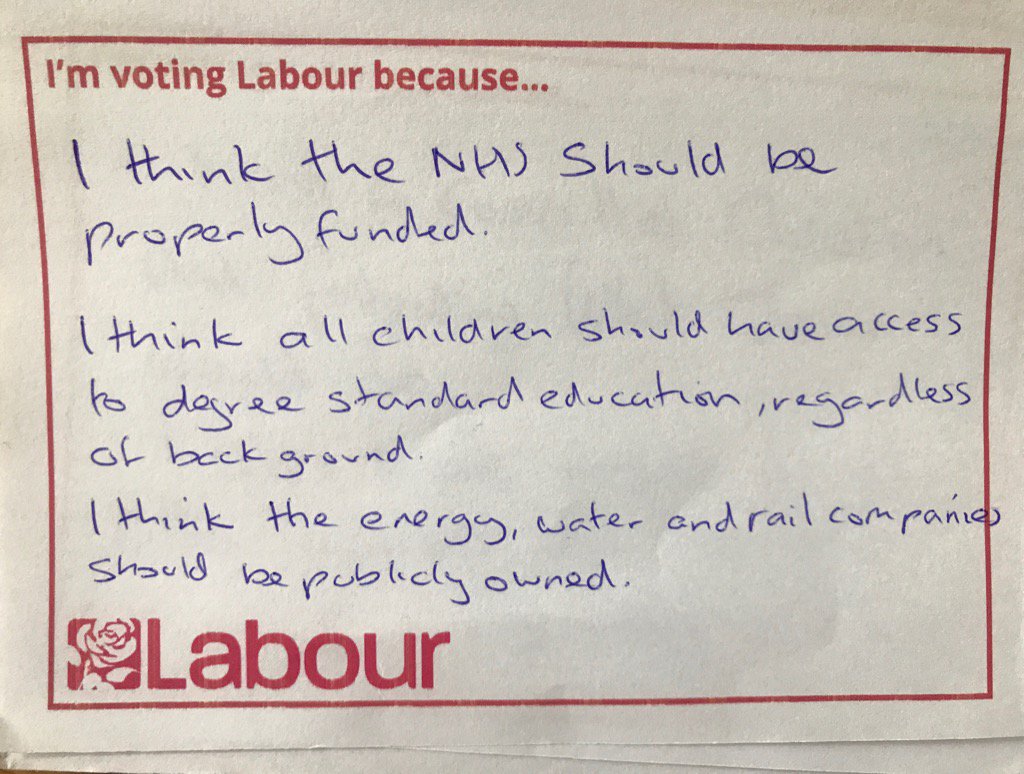 I'm voting Labour because...
I think the NHS should be
properly funded.
I think all children should have access
to degree standard education, regardless
of back ground.
I think the energy, water and rail companies
should be publicly owned.
Labour